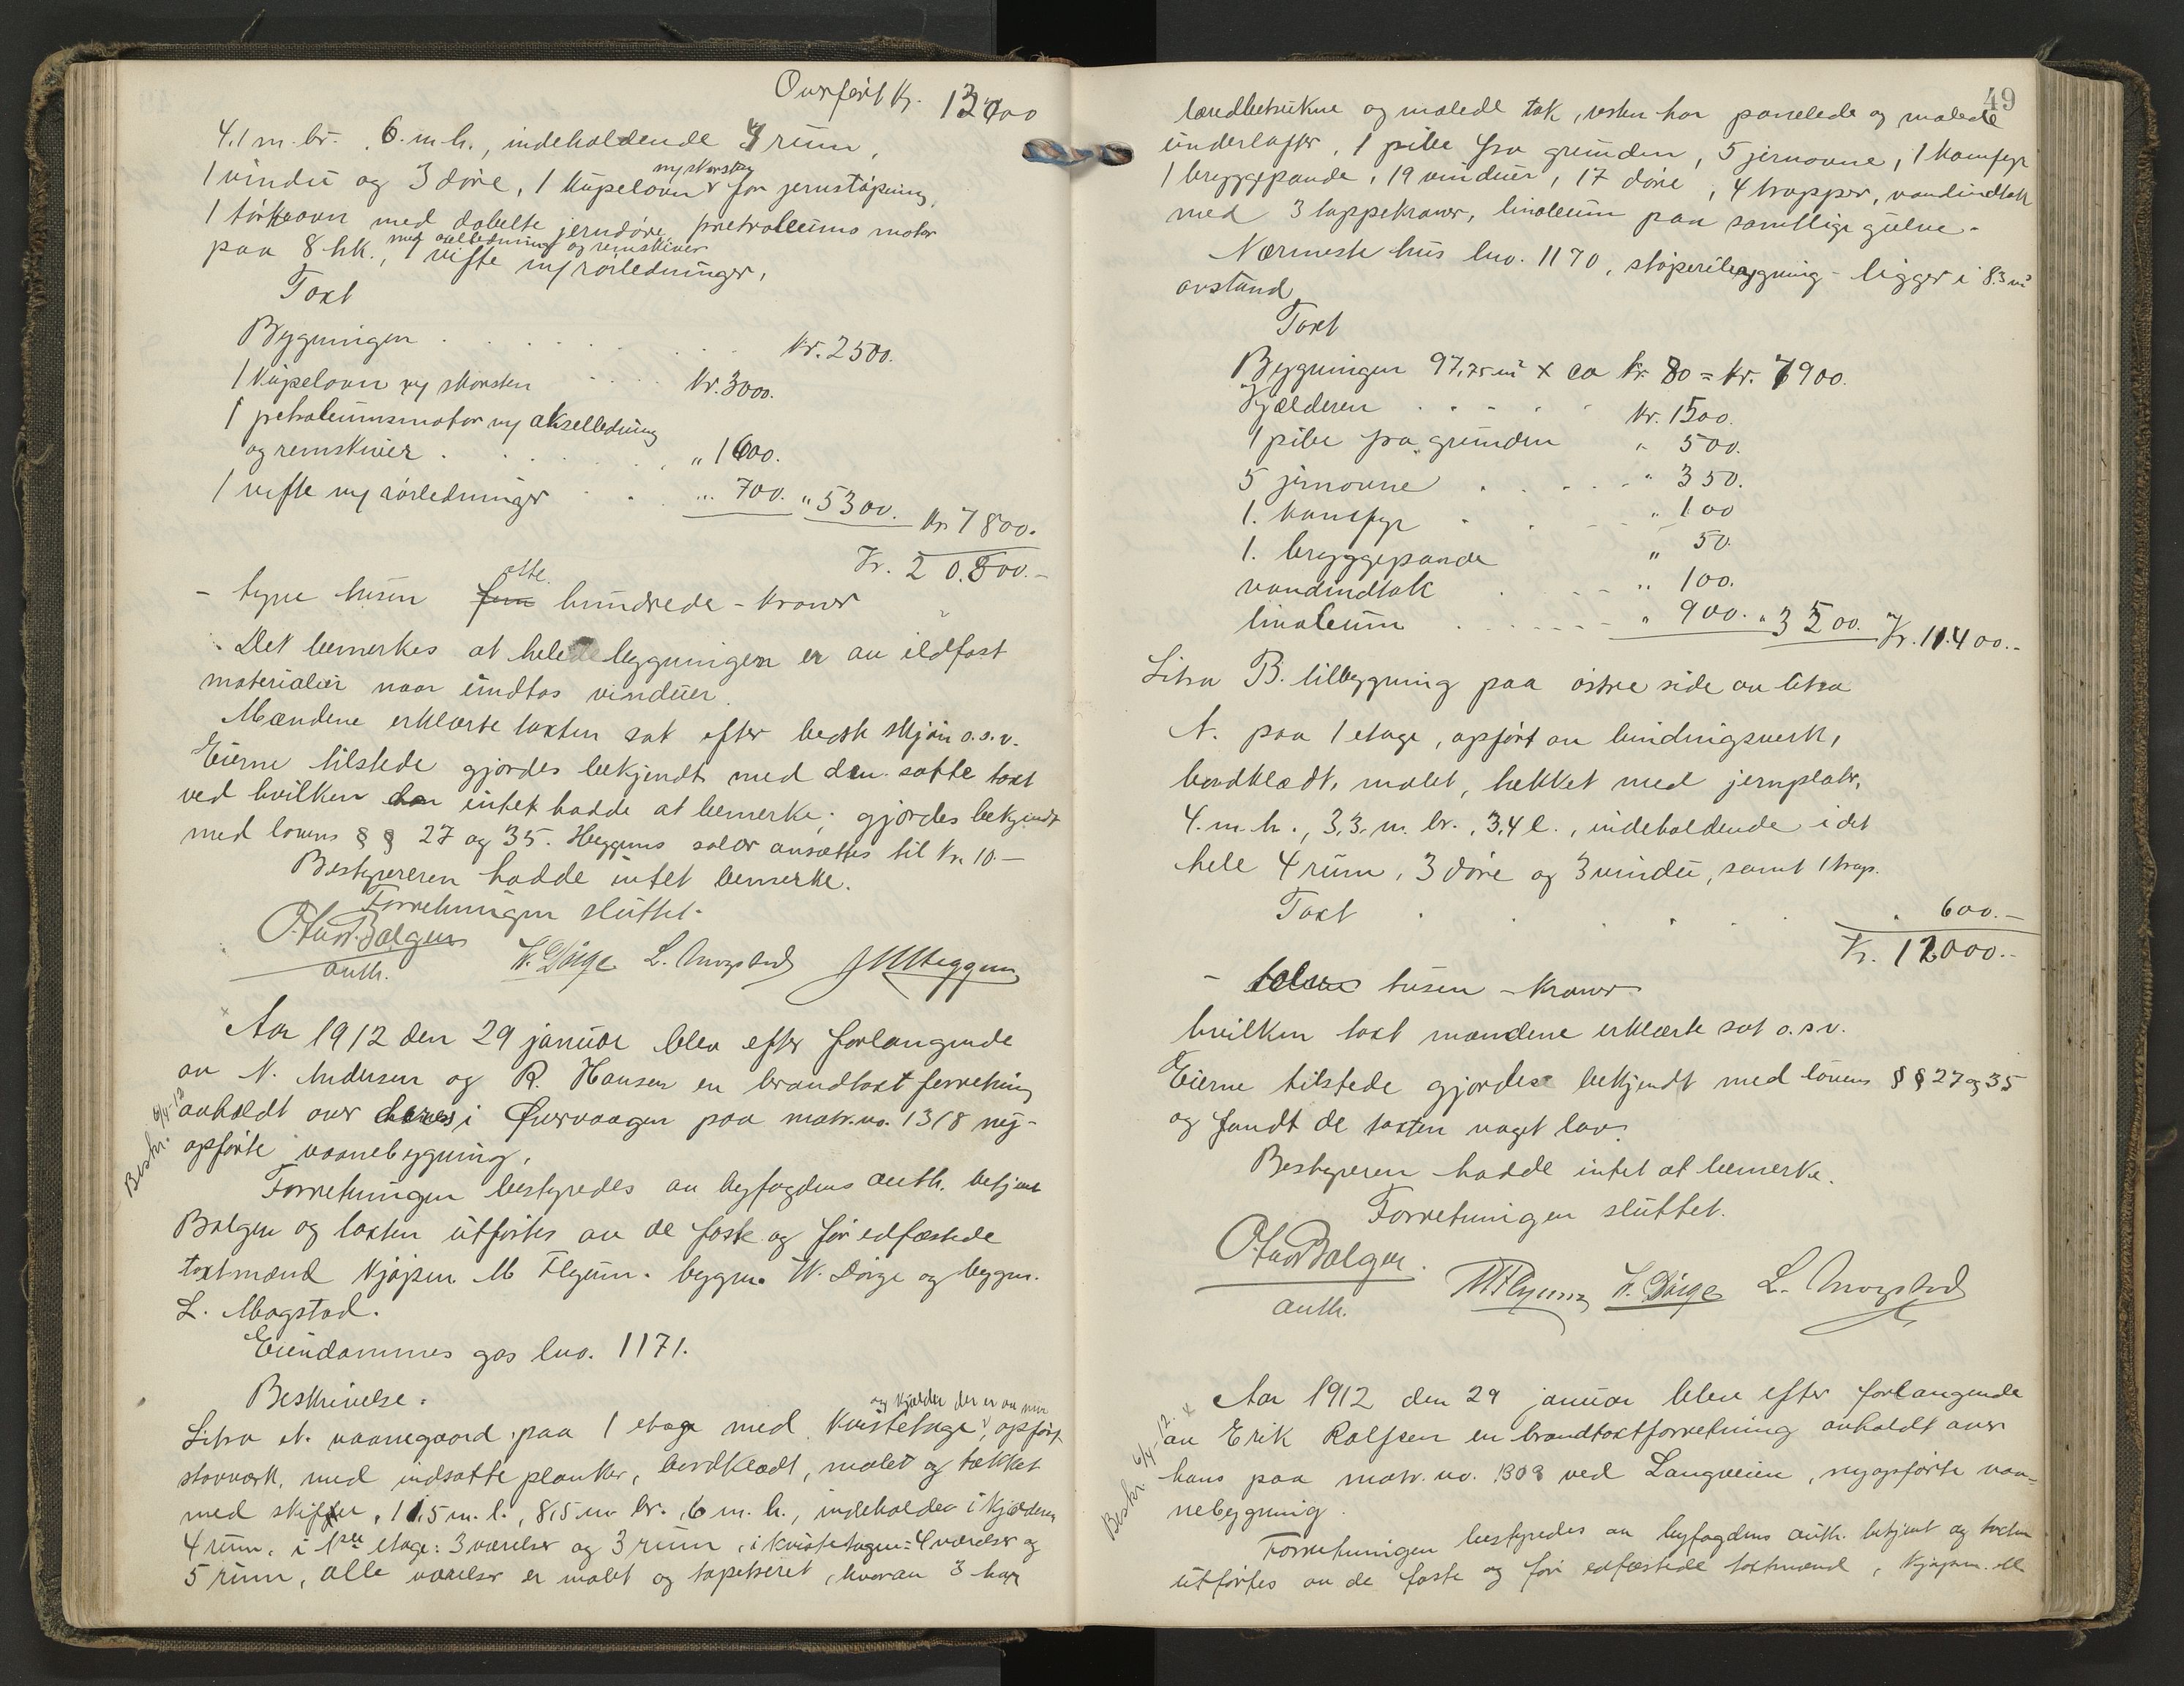 Overført Kr. 13000
4.1 m. br. 6. m. h., indeholdende 4 rum,
1 vindu og 3 døre, 1 kupelovn m/ skorsten for jernstøpning,
1 tørkeovn med dobelte jerndøre, pretroleums motor
paa 8 hk., med akselledning og remskiver 1 vifte m/ rørledninger,
Taxt
Bygningen . . . . . . Kr. 2500.
1 Kupelovn m/ skorsten . . . Kr. 3000.
1 petroleumsmotor m/ akselledning
og remskiver . . . . . . „ 1600.
1 vifte m/ rørledninger . . „ 700. „ 5300. Kr. 7800.
Kr. 20.800.-
- tyve tusen fem otte hundrede - kroner
Det bemerkes at hele bygningen er av ildfast
materialier naar undtas vinduer.
Mændene erklærte taxten sat efter bedste skjøn o.s.v.
Eierne tilstede gjordes bekjendt med den satte taxt
ved hvilken de intet hadde at bemerke; gjordes bekjendt
med lovens § § 27 og 35. Heggems salær ansættes til Kr. 10 -
Bestyreren hadde intet bemerke.
Forretningen sluttet.
Olav Bølgen W. Dørge L. Mogstad J M Heggem
auth.
Aar 1912 den 29 januar blev efter forlangende
av N. Andersen og R. Hansen en brandtaxt forretning
Beskr. 6/4-12
avholdt over deres i Ørvaagen paa matr. no. 1318 ny-
opførte vaanebygning.
Forretningen bestyredes av byfogdens auth. betjent
Bølgen og taxten utførtes av de faste og før edfæstede
taxtmænd Kjøpm. M Flyum. bygm. W. Dørge og bygm.
L. Mogstad.
Eiendommens gas bno. 1171.
Beskrivelse.
Litra A. vaanegaard paa 1 etage med Kvistetage og kjælder der er av mur, opført
stavverk, med indsatte planker, bordklædt, malet og tækket
med skiffer, 11,5 m. l., 8,5 m br. 6 m. h., indeholder i kjælderen
4 rum, i 1ste etage: 3 værelser og 3 rum, i kvistetagen: 4 værelser og
5 rum, alle værelser er malet og tapetseret, hvorav 3 har
49
lærredbetrukne og malede tak, resten har panelede og malede
underlofter, 1 pibe fra grunden, 5 jernovne, 1 komfyr
1 bryggepande, 19 vinduer, 17 døre, 4 trapper, vandindtak
med 3 tappekraner, linoleum paa samtlige gulve.
Nærmeste hus bno. 1170, støperibygning - ligger i 8.3 m's
avstand
Taxt
Bygningen 97,75 m² x ca Kr. 80 = Kr. 7900.
Kjælderen . . . . . Kr. 1500.
1 pibe fra grunden „ 500.
5 jernovne . . . . „ 350.
1. komfyr . . . „ 100
1. bryggepande „ 50.
vandindtak . . . „ 100.
linoleum . . . . . „ 900. „ 3500. Kr. 11.400.-
Litra B. tilbygning paa østre side av litra
A. paa 1 etage, opført av bindingsverk,
bordklædt, malet, tækket med jernplater,
4. m. h., 3,3. m. br., 3,4 l., indeholdende i det
hele 4 rum, 3 døre og 3 vindu, samt 1 trap.
Taxt . . . . . . „ 600.-
Kr. 12000.-
- tolv tusen - kroner
hvilken taxt mændene erklærte sat o.s.v.
Eierne tilstede gjordes bekjendt med lovens § § 27 og 35
og fandt de taxten noget lav.
Bestyreren hadde intet at bemerke.
Forretningen sluttet.
Olav Bølgen.
auth. M Flyum W. Dørge L. Mogstad
Aar 1912 den 29 januar blev efter forlangende
Beskr. 6/4-12.
av Erik Rolfsen en brandtaxtforretning avholdt over
hans paa matr. no. 1308 ved Langveien, nyopførte vaa-
nebygning.
Forretningen bestyredes av byfogdens auth. betjent og taxten
utførtes av de faste og før edfæstede taxtmænd, kjøpm. M